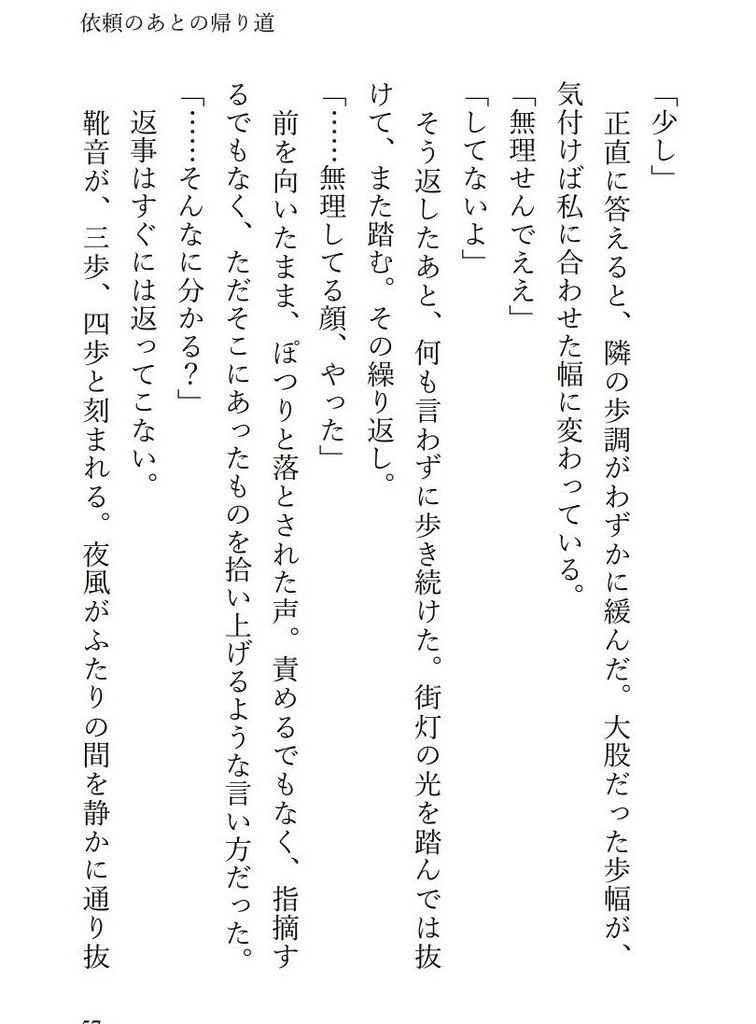 依頼のあとの帰り道
「少し」
正直に答えると、隣の歩調がわずかに緩んだ。大股だった歩幅が、
気付けば私に合わせた幅に変わっている。
「無理せんでええ」
「してないよ」
そう返したあと、何も言わずに歩き続けた。街灯の光を踏んでは抜
けて、また踏む。その繰り返し。
「……無理してる顔、やった」
前を向いたまま、ぽつりと落とされた声。責めるでもなく、指摘す
るでもなく、ただそこにあったものを拾い上げるような言い方だった。
「……そんなに分かる？」
返事はすぐには返ってこない。
靴音が、三歩、四歩と刻まれる。夜風がふたりの間を静かに通り抜
57